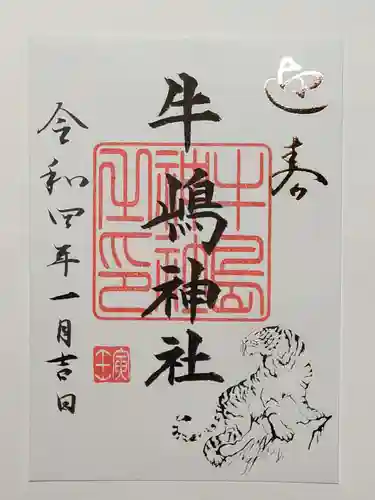 迎春
牛嶋神社
令和四年一月吉日
牛島
神社
之印
壬寅